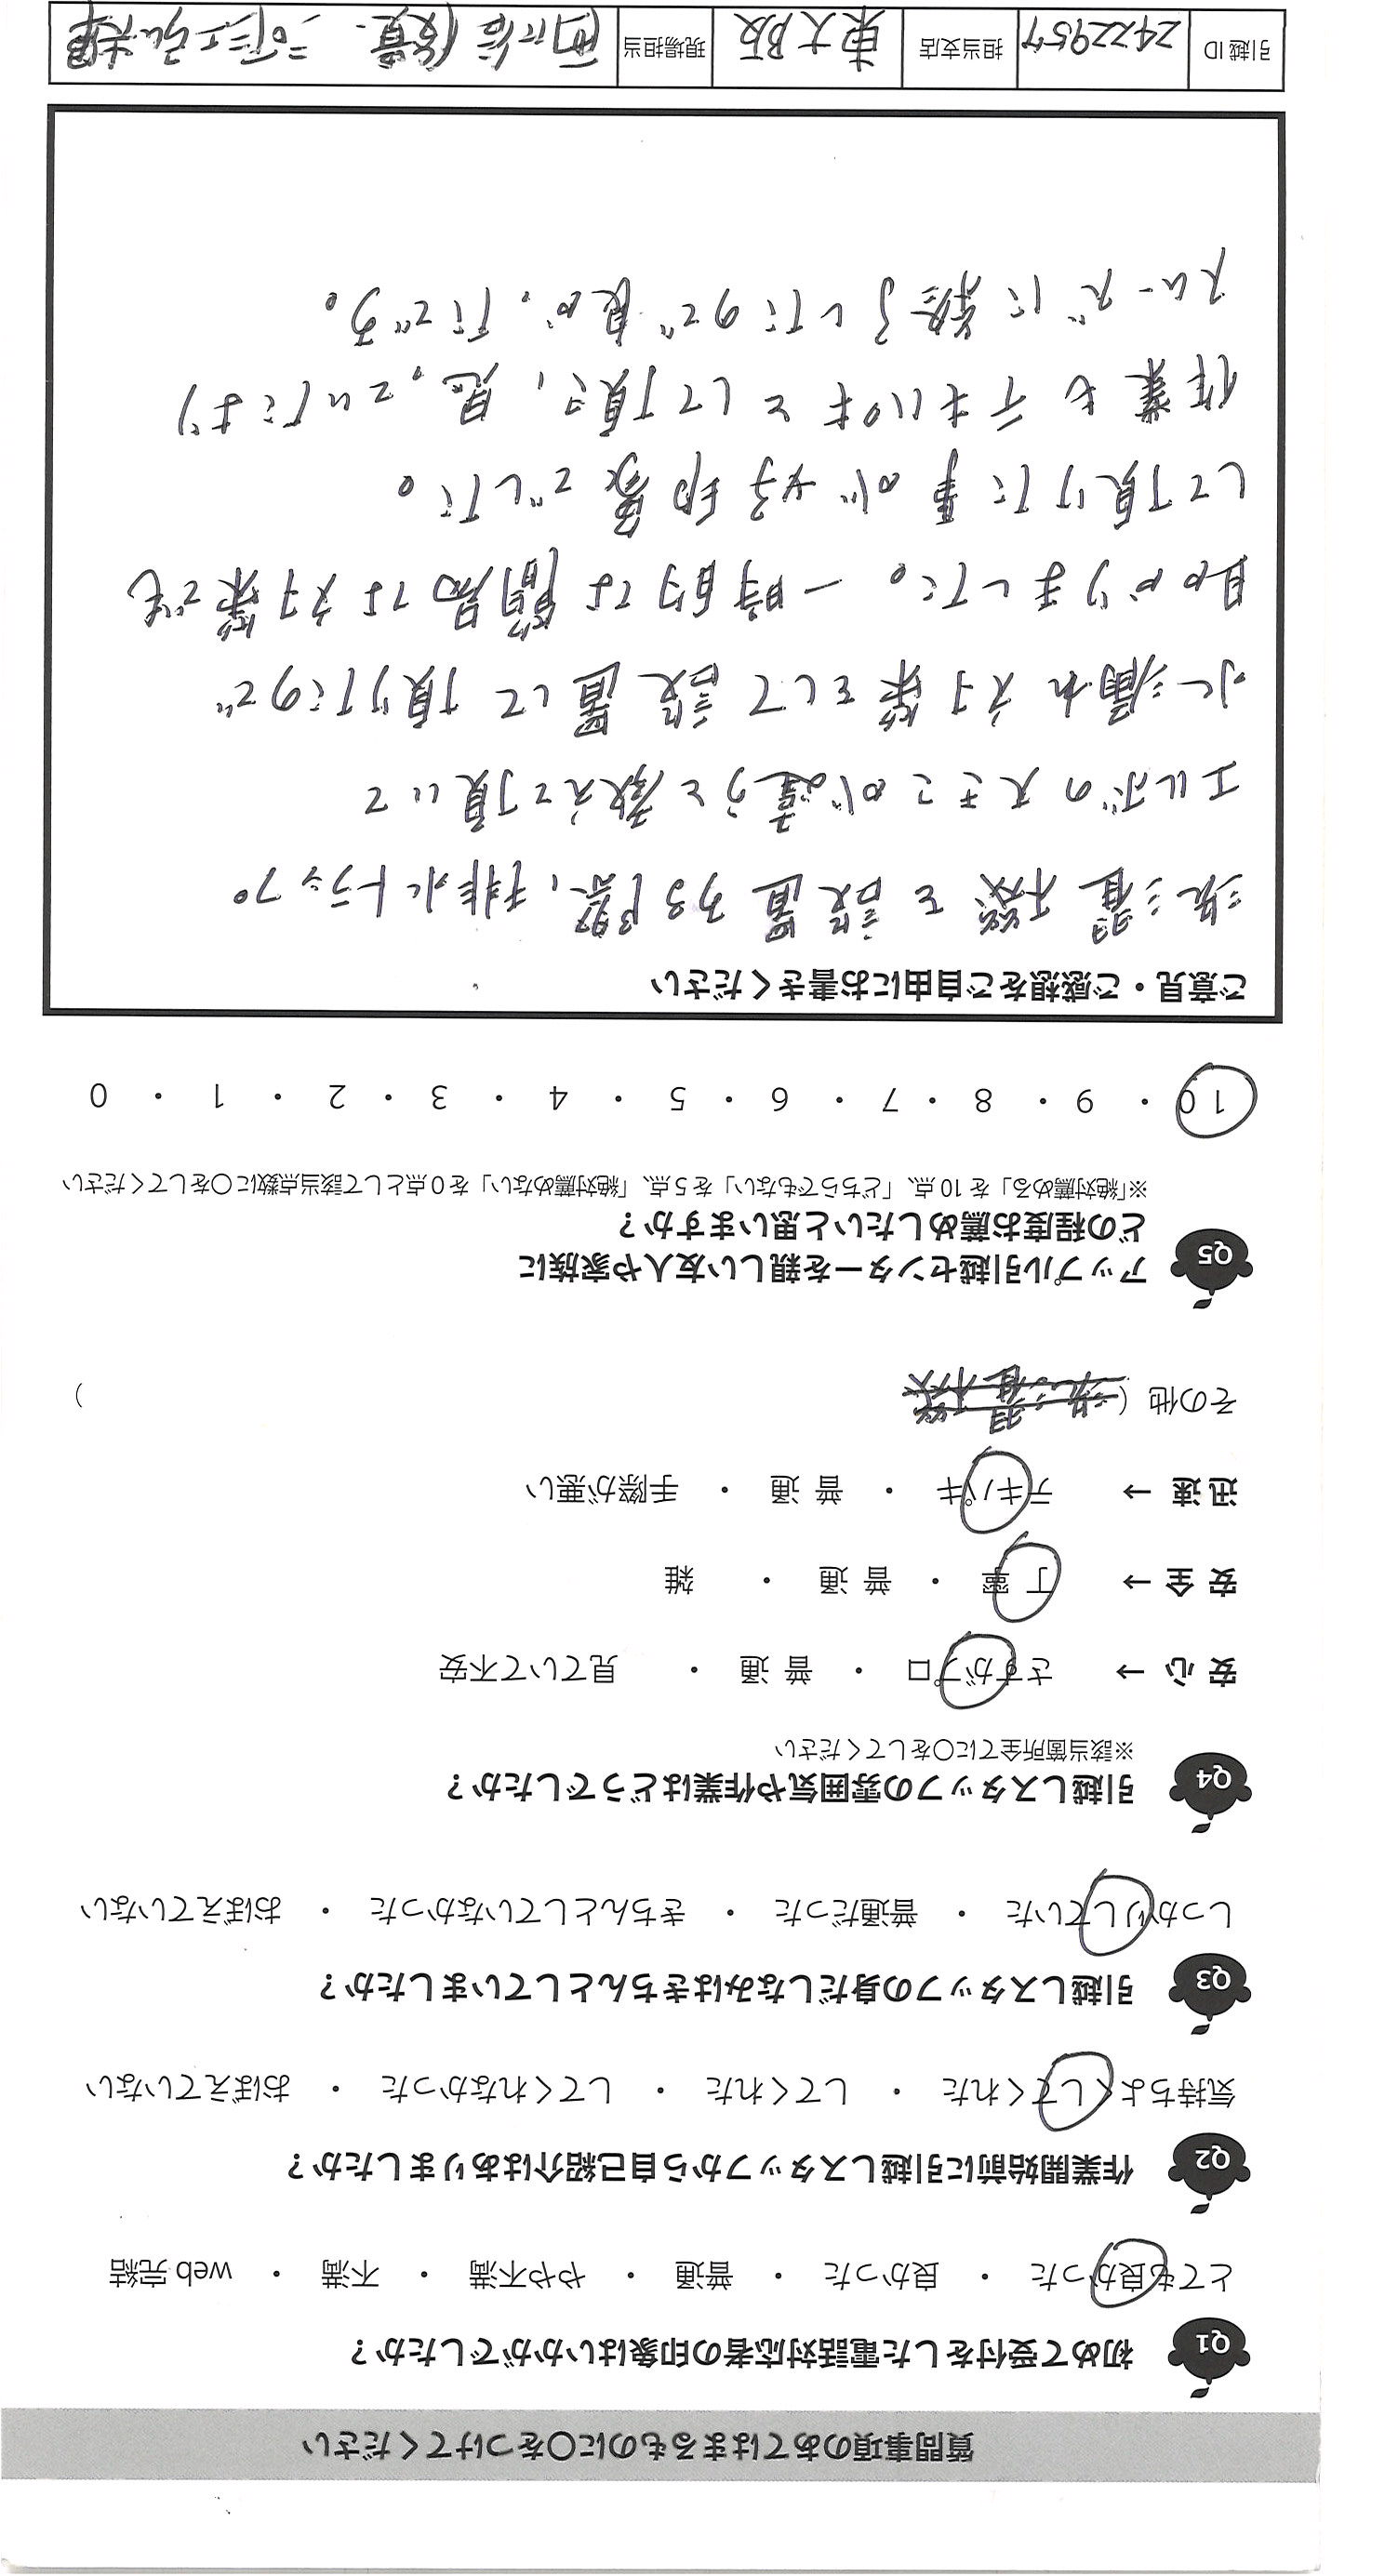 質問事項のあてはまるものに○をつけてください
Q1 初めて受付をした電話対応者の印象はいかがでしたか？
とても良かった ・ 良かった ・ 普通 ・ やや不満 ・ 不満 ・ web 完結
Q2 作業開始前に引越しスタッフから自己紹介はありましたか？
気持ちよくしてくれた ・ してくれた ・ してくれなかった ・ おぼえていない
Q3 引越しスタッフの身だしなみはきちんとしていましたか？
しっかりしていた ・ 普通だった ・ きちんとしていなかった ・ おぼえていない
Q4 引越しスタッフの雰囲気や作業はどうでしたか？
※該当箇所全てに○をしてください
安 心 → さすがプロ ・ 普 通 ・ 見ていて不安
安 全 → 丁 寧 ・ 普 通 ・ 雑
迅 速 → テキパキ ・ 普 通 ・ 手際が悪い
その他（洗濯機 ）
Q5 アップル引越センターを親しい友人や家族に
どの程度お薦めしたいと思いますか？
※「絶対薦める」を 10 点、「どちらでもない」を 5 点、「絶対薦めない」を 0 点として該当点数に○をしてください
10 ・ 9 ・ 8 ・ 7 ・ 6 ・ 5 ・ 4 ・ 3 ・ 2 ・ 1 ・ 0
ご意見・ご感想をご自由にお書きください
洗濯機を設置する際、排水トラップ
エルボの大きさが違うと教えて頂いて
水漏れ対策をして設置して頂けたので
助かりました。一時的な簡易な対策でも
して頂けた事が好印象でした。
作業もテキパキとして頂き、思っていたより
スムーズに終了したので良かったです。
引越 ID 2422957 担当支店 東大阪 現場担当